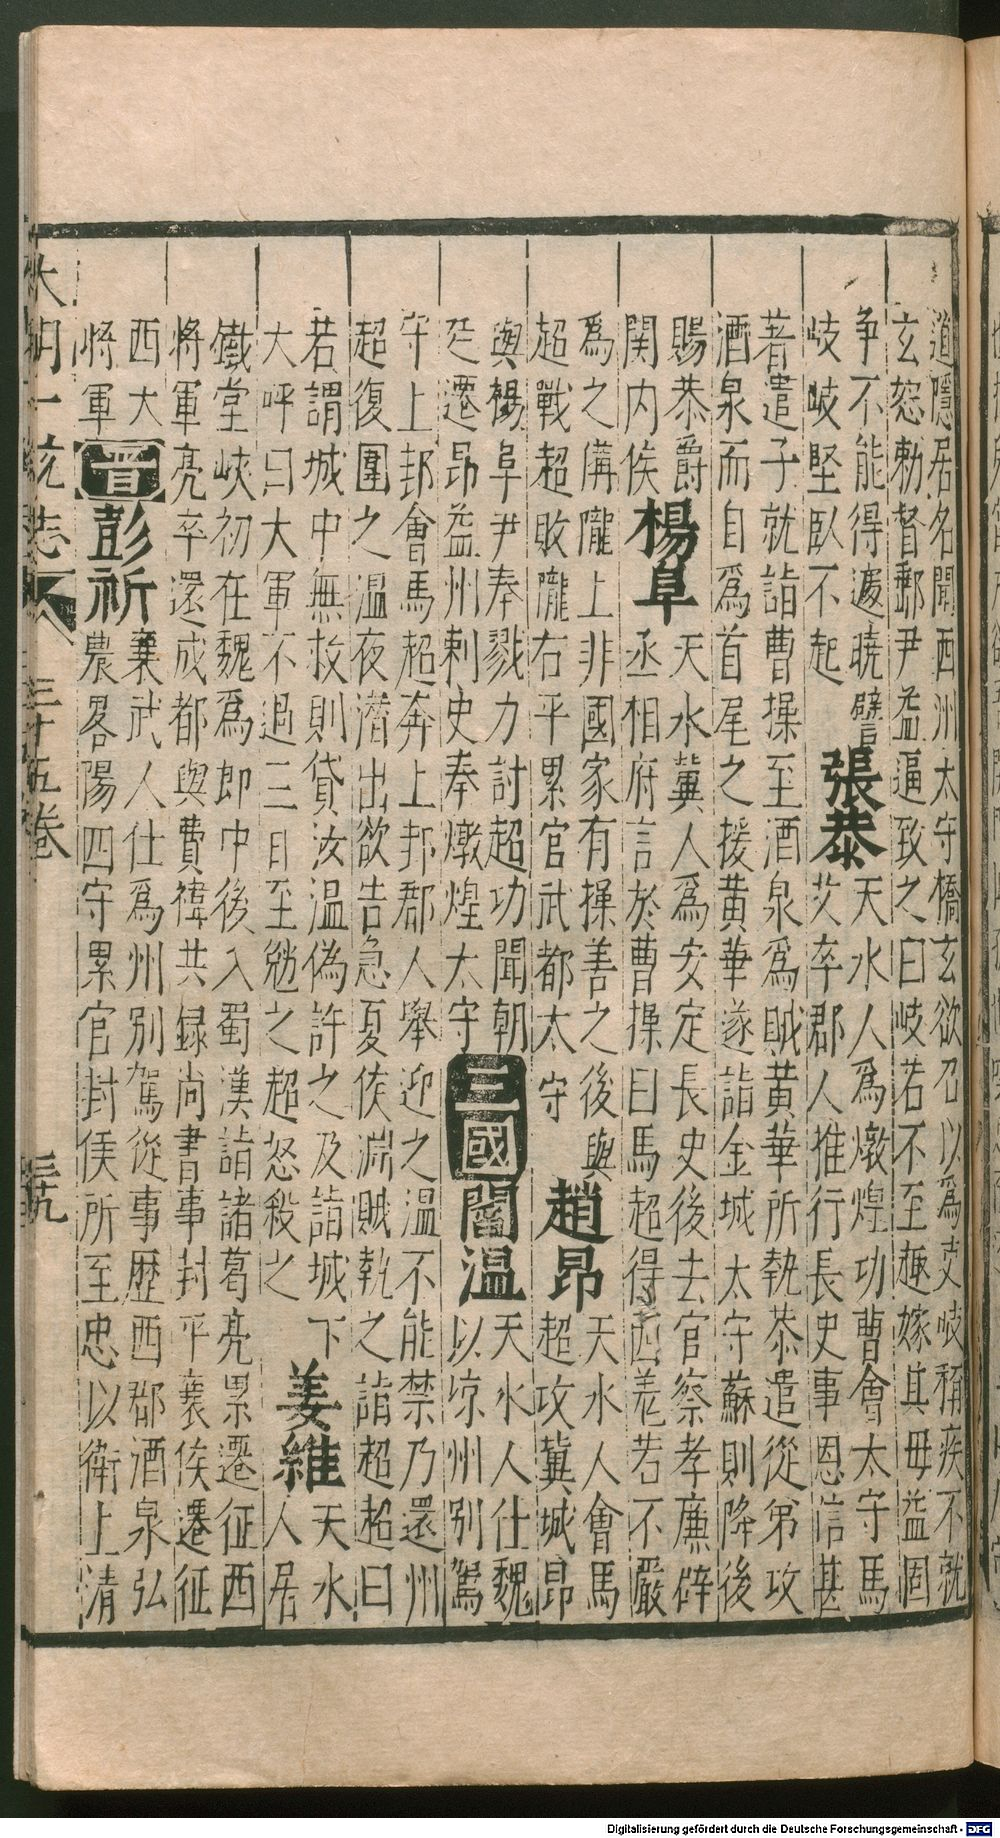 道隱居名聞西州太守橋玄欲召以爲吏岐稱疾不就
玄怒勅督郵尹益逼致之曰岐若不至趣嫁其母益固
争不能得遽曉譬
岐岐堅臥不起
張恭
天水人爲燉煌功曹會太守馬
艾卒郡人推行長史事恩信甚
著遣子就詣曹操至酒泉爲賊黃華所執恭遣從弟攻
酒泉而自爲首尾之援黃華遂詣金城太守蘇則降後
賜恭爵
関内侯
楊阜
天水兾人爲安定長史後去官察孝廉辟
丞相府言於曹操曰馬超得西羗若不嚴
爲之備隴上非國家有操善之後與
超戰超敗隴右平累官武都太守
趙昂
天水人會馬
超攻兾城昂
與楊阜尹奉戮力討超功聞朝
廷遷昂益州刺史奉燉煌太守
三國
閻溫
天水人仕魏
以凉州別駕
守上邽會馬超奔上邽郡人舉迎之溫不能禁乃還州
超復圍之溫夜潛出欲告急夏侯淵賊執之詣超超曰
若謂城中無救則貸汝溫偽許之及詣城下
大呼曰大軍不過三日至勉之超怒殺之
姜維
天水
人居
鐵堂峽初在魏爲郎中後入蜀漢詣諸葛亮累遷征西
將軍亮卒還成都與費禕共録尚書事封平襄侯遷征
西大
將軍
晋
彭祈
襄武人仕爲州別駕從事歴西郡酒泉弘
農畧陽四守累官封侯所至忠以衛上清
大明一統志 三十五卷 三十九
Digitalisierung gefördert durch die Deutsche Forschungsgemeinschaft - DFG